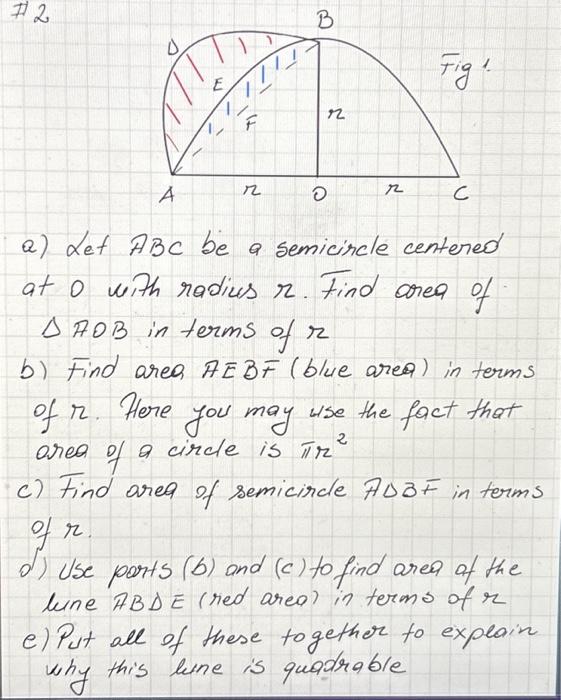 #2
B
D
Fig 1.
E
F
r
A
r
O
r
C
a) Let ABC be a semicircle centered
at O with radius r. Find area of
Δ AOB in terms of r
b) Find area AEBF (blue area) in terms
of r. Here you may use the fact that
area of a circle is πr²
c) Find area of semicircle ADBF in terms
of r.
d) Use parts (b) and (c) to find area of the
lune ABDE (red area) in terms of r
e) Put all of these together to explain
why this lune is quadrable